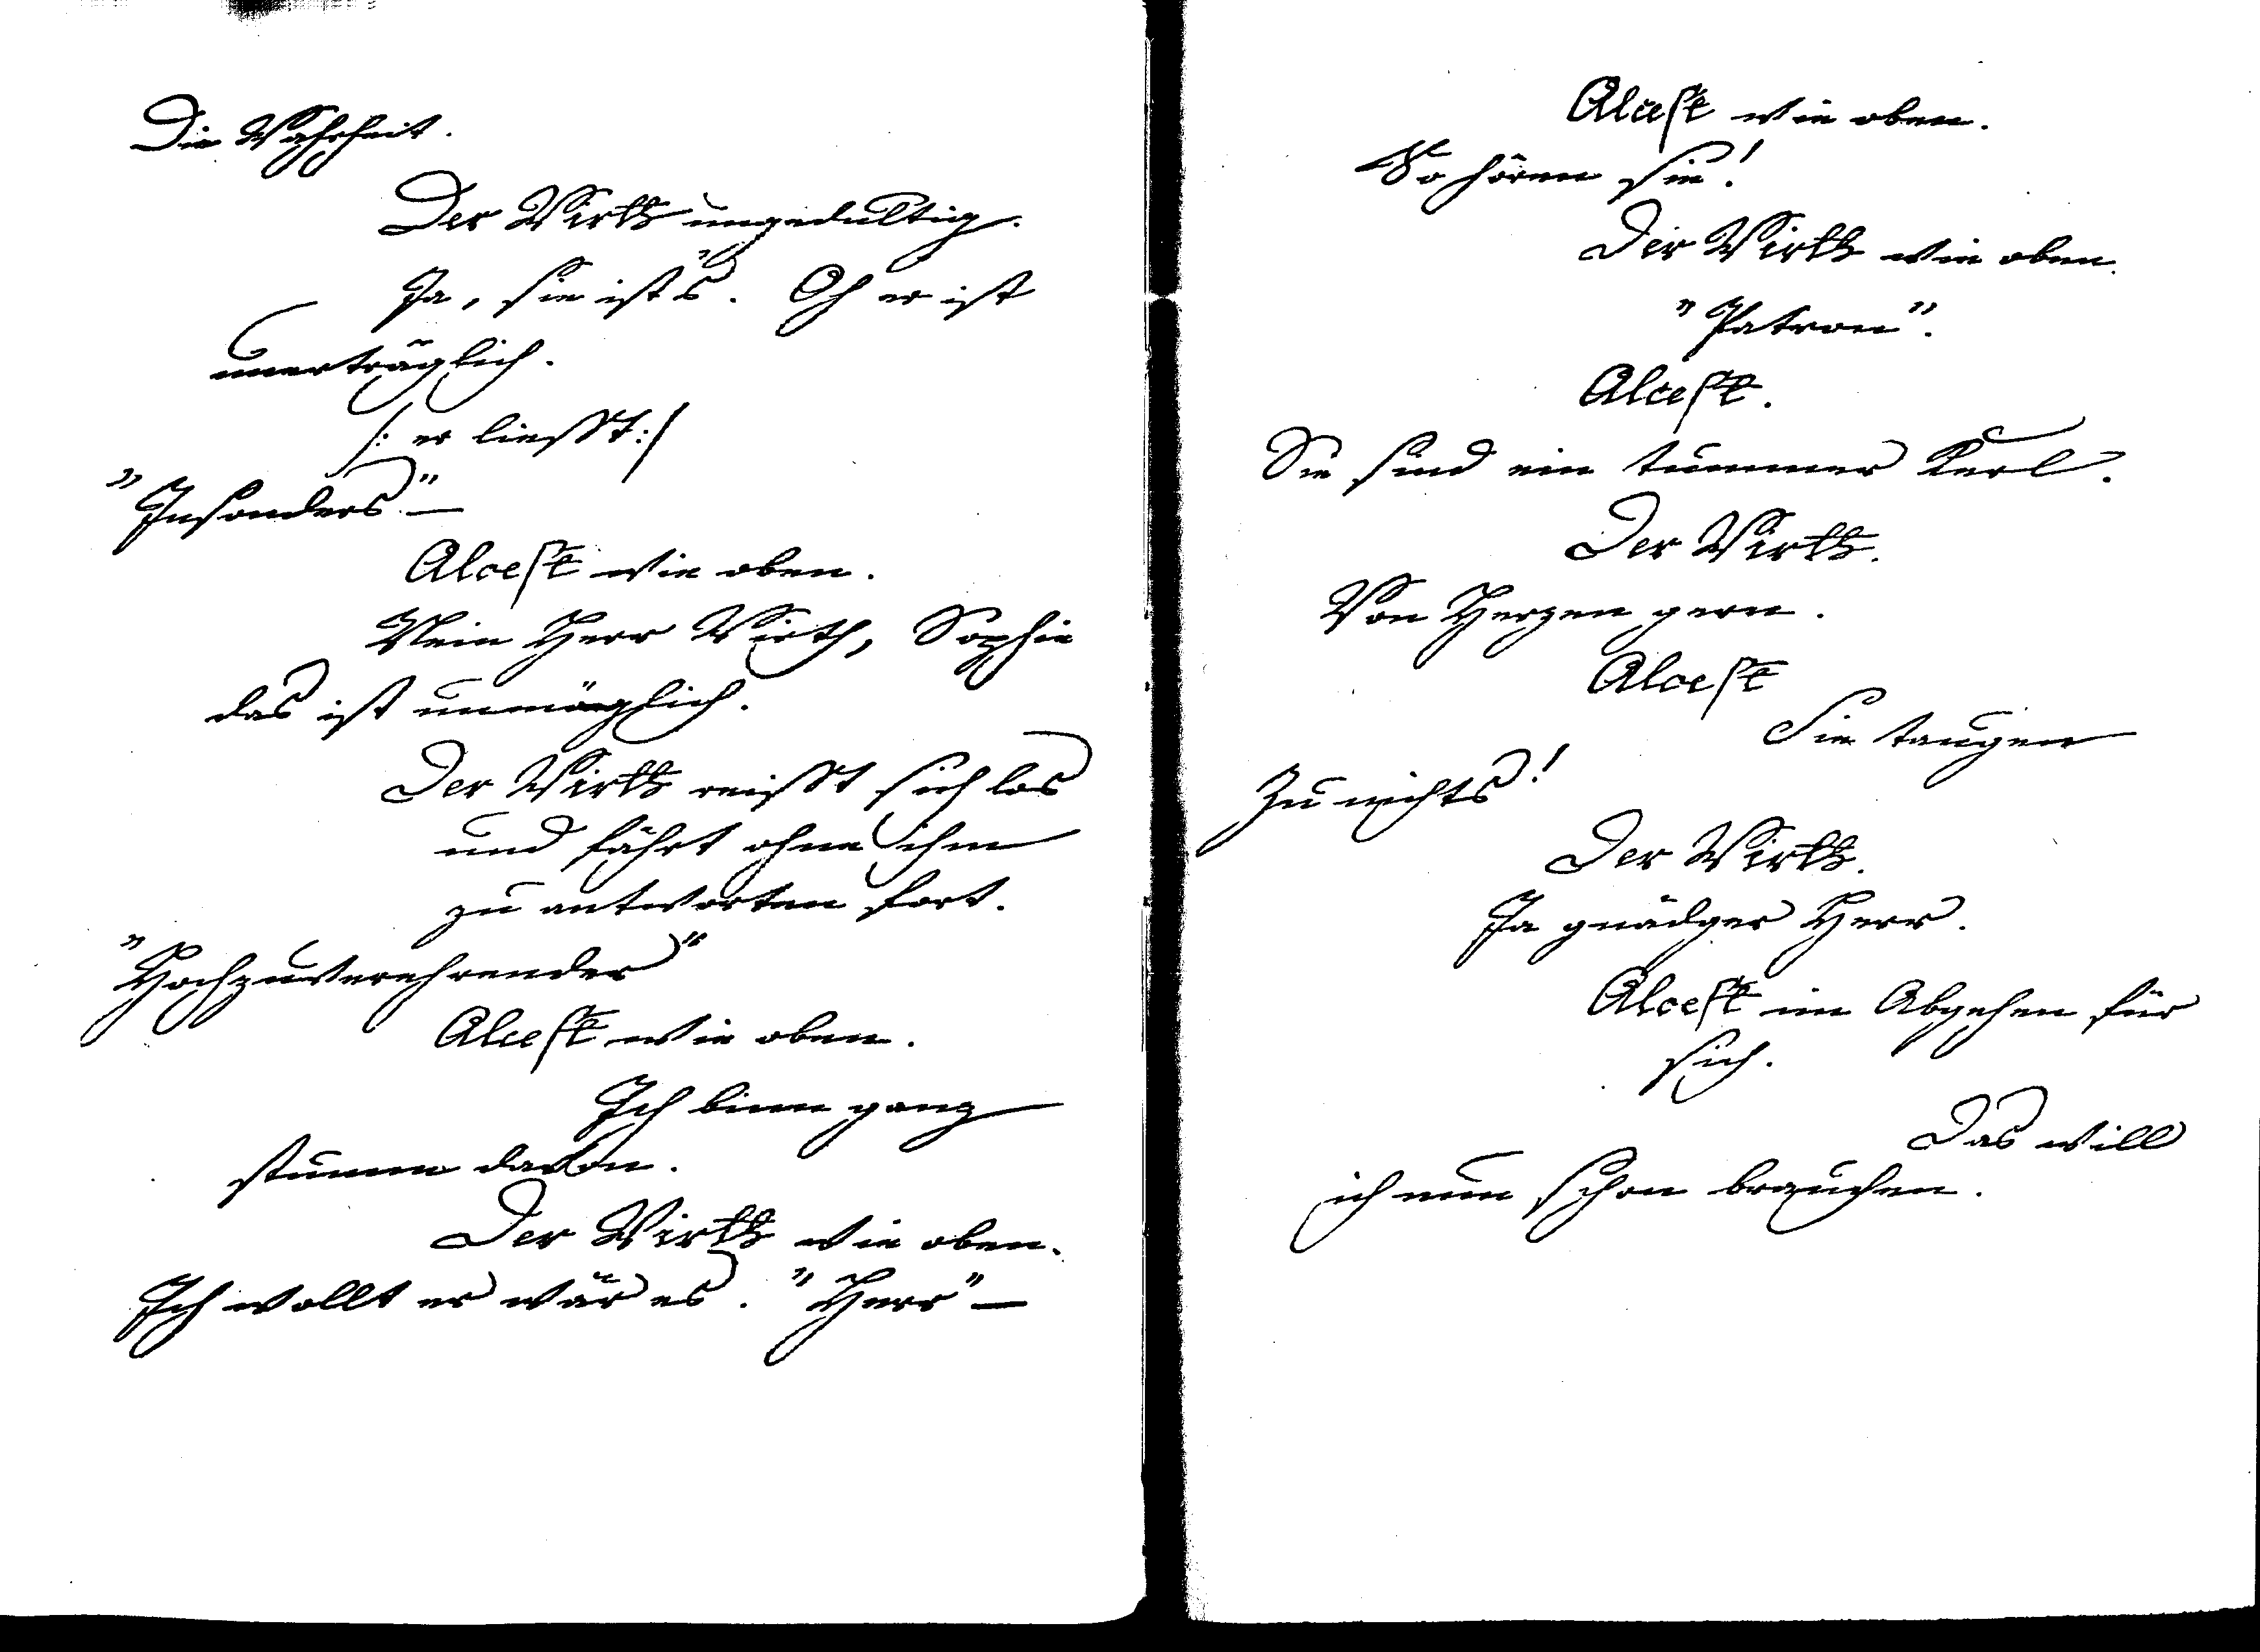 Die Wahrheit.
Der Wirth ungedultig.
Ja, sie ists. Oh er ist
unerträglich.
/: er liesst :/
"Insonders" —
Alcest wie oben.
Nein Herr Wirth, Sophie
das ist unmöglich.
Der Wirth reisst sich los
und fährt ohne ihm
zu antworten fort.
"Hochzuverehrender"
Alcest wie oben.
Ich binn ganz
stumm davon.
Der Wirth wie oben.
Ich wollt er wär es. "Herr" —
Alcest wie oben.
So hören sie!
Der Wirth wie oben.
"Patron".
Alcest.
Sie sind ein tummer Kerl.
Der Wirth.
Von Herzen gern.
Alcest
Sie taugen
zu nichts!
Der Wirth.
Ja gnädger Herr.
Alcest im Abgehen für
sich.
Das will
ich nun schon brauchen.